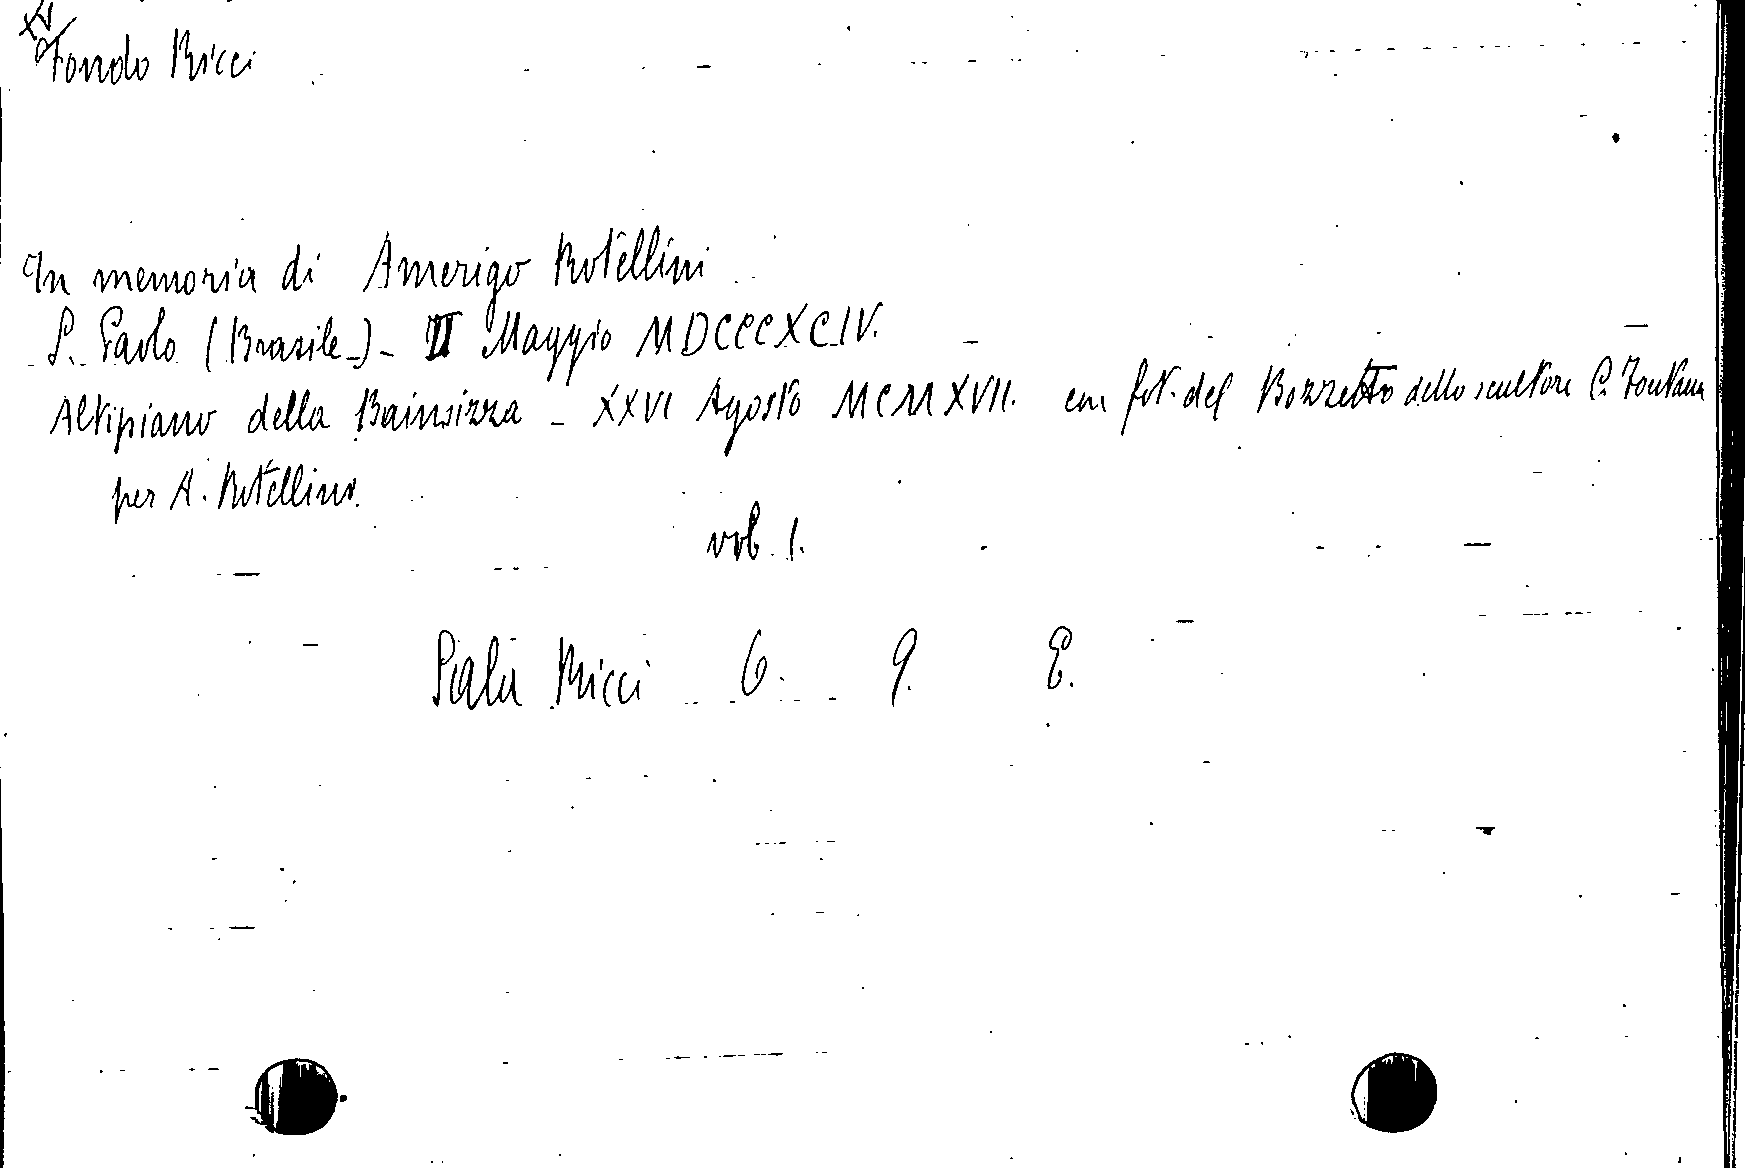 Fondo Ricci
In memoria di Amerigo Rotellini
S. Paolo (Brasile) - II Maggio MDCCCXCIV.
Altipiano della Bainsizza - XXVI Agosto MCMXVII. con fot. del Bozzetto dello scultore C. Fontana
per A. Rotellini.
vol. 1.
Sala Ricci 6. 9. E.